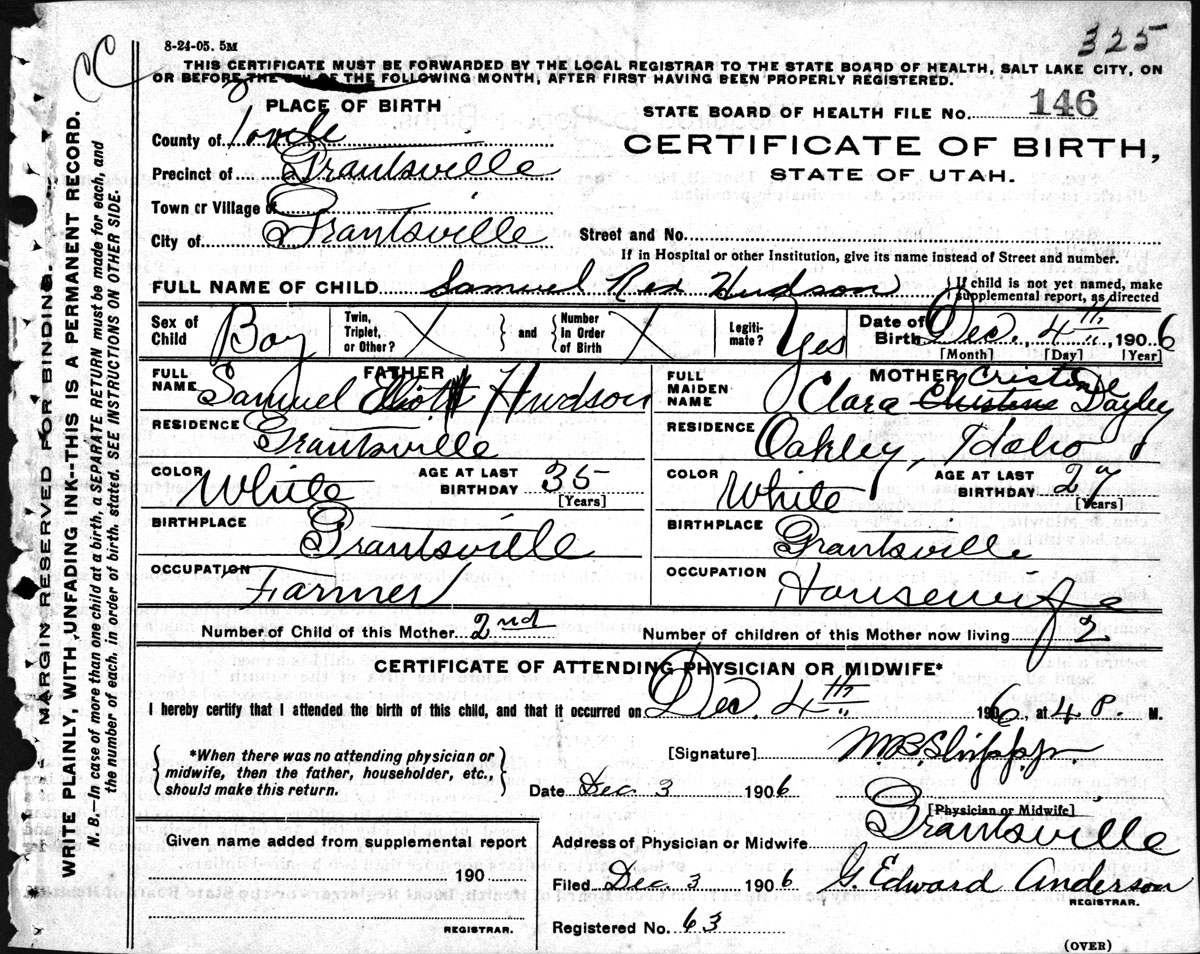 325
CC
8-24-05. 5M
THIS CERTIFICATE MUST BE FORWARDED BY THE LOCAL REGISTRAR TO THE STATE BOARD OF HEALTH, SALT LAKE CITY, ON
OR BEFORE THE OF THE FOLLOWING MONTH, AFTER FIRST HAVING BEEN PROPERLY REGISTERED.
PLACE OF BIRTH
STATE BOARD OF HEALTH FILE No. 146
County of Tooele
CERTIFICATE OF BIRTH,
Precinct of Grantsville
STATE OF UTAH.
Town or Village of
City of Grantsville
Street and No.
If in Hospital or other Institution, give its name instead of Street and number.
FULL NAME OF CHILD Samuel Rex Hudson { If child is not yet named, make
supplemental report, as directed
Sex of Child Boy Twin, Triplet, or Other? X } and { Number In Order of Birth X Legiti- mate? Yes Date of Birth Dec. 4th, 1906
[Month] [Day] [Year]
FATHER
FULL NAME Samuel Elliott Hudson
RESIDENCE Grantsville
COLOR White AGE AT LAST BIRTHDAY 35
[Years]
BIRTHPLACE Grantsville
OCCUPATION Farmer
MOTHER
FULL MAIDEN NAME Clara Christine Cristine Dayley
RESIDENCE Oakley, Idaho
COLOR White AGE AT LAST BIRTHDAY 27
[Years]
BIRTHPLACE Grantsville
OCCUPATION Housewife
Number of Child of this Mother 2nd Number of children of this Mother now living 2
CERTIFICATE OF ATTENDING PHYSICIAN OR MIDWIFE*
I hereby certify that I attended the birth of this child, and that it occurred on Dec. 4th 1906, at 4 P. M.
{ *When there was no attending physician or
midwife, then the father, householder, etc.,
should make this return. }
[Signature]
Date Dec 3 1906
[Physician or Midwife]
Address of Physician or Midwife Grantsville
Given name added from supplemental report
190
REGISTRAR.
Filed Dec. 3 1906 G. Edward Anderson
REGISTRAR.
Registered No. 63
(OVER)
MARGIN RESERVED FOR BINDING.
WRITE PLAINLY, WITH UNFADING INK--THIS IS A PERMANENT RECORD.
N. B.—In case of more than one child at a birth, a SEPARATE RETURN must be made for each, and
the number of each, in order of birth, stated. SEE INSTRUCTIONS ON OTHER SIDE.